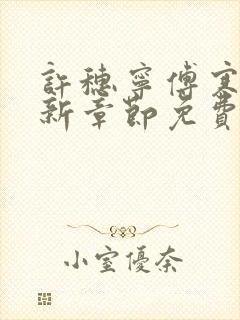 許穗寧傅寒
新章節免費
小室優奈